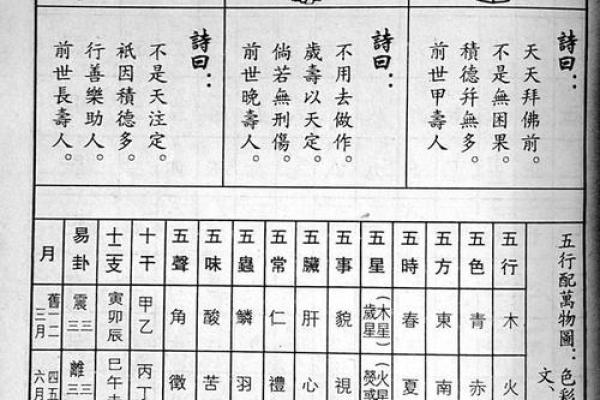 詩曰：
天天拜佛前。
不是無因果。
積德幷無多。
前世甲壽人。
詩曰：
不用去做作。
歲壽以天定。
倘若無刑傷。
前世晚壽人。
詩曰：
不是天注定。
祇因積德多。
行善樂助人。
前世長壽人。
五行配萬物圖：色彩
文、
五行 木 火
五色 青 赤
五方 東 南
五時 春 夏
五星 （木星 歲星 （火星
五事 貌 視
五臟 肝 心
五常 仁 禮
五蟲 鱗 羽
五味 酸 苦
五聲 角 徵
十干 甲乙 丙丁
十二支 寅卯辰 巳午
易卦 震 離
月 舊一二三月 四五六月